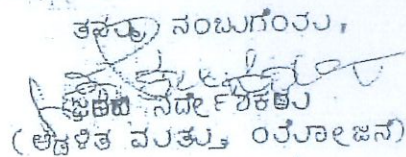 ತಮ್ಮ ನಂಬುಗೆಯ,
ನಿರ್ದೇಶಕರು
(ಆಡಳಿತ ಮತ್ತು ಯೋಜನೆ)